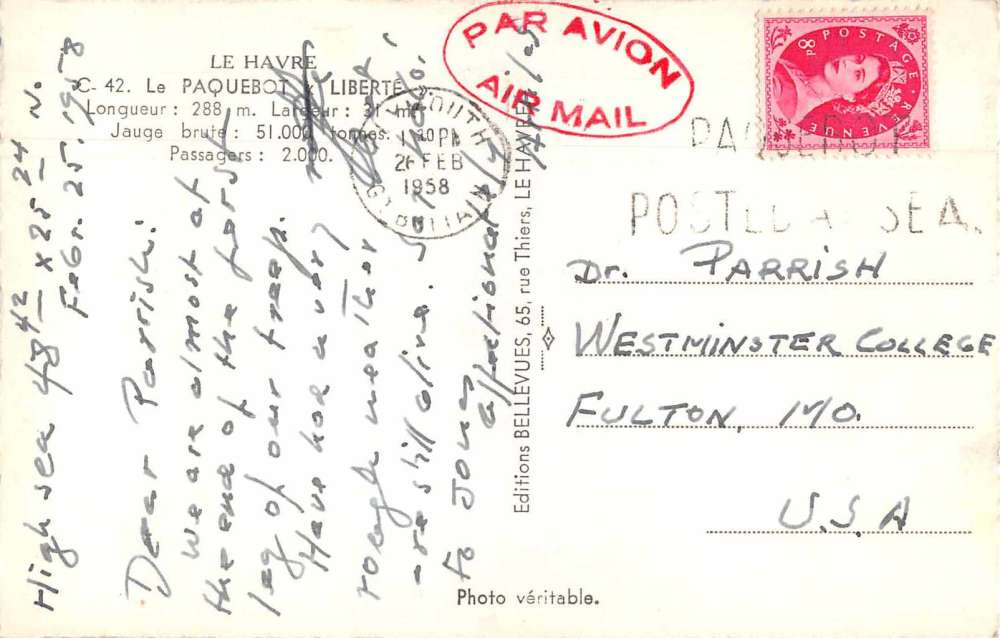 LE HAVRE
C- 42. Le PAQUEBOT « LIBERTÉ
Longueur : 288 m. Largeur : 31 m.
Jauge brute : 51.000 tonnes.
Passagers : 2.000.
PAR AVION
AIR MAIL
POSTAGE REVENUE
8D
PM
26 FEB
1958
GT BRITAIN
PAQUEBOT
POSTED AT SEA.
High sea 48 42 N. x 25 24
Febr. 25. 1958
Dear Parrish:
We are almost at
the end of the first
leg of our treep.
Have had a very
rough weather
still alive.
to Jones
affectionately
Dr. PARRISH
WESTMINSTER COLLEGE
FULTON, MO.
U.S.A
Editions BELLEVUES, 65, rue Thiers, LE HAVRE
Photo véritable.